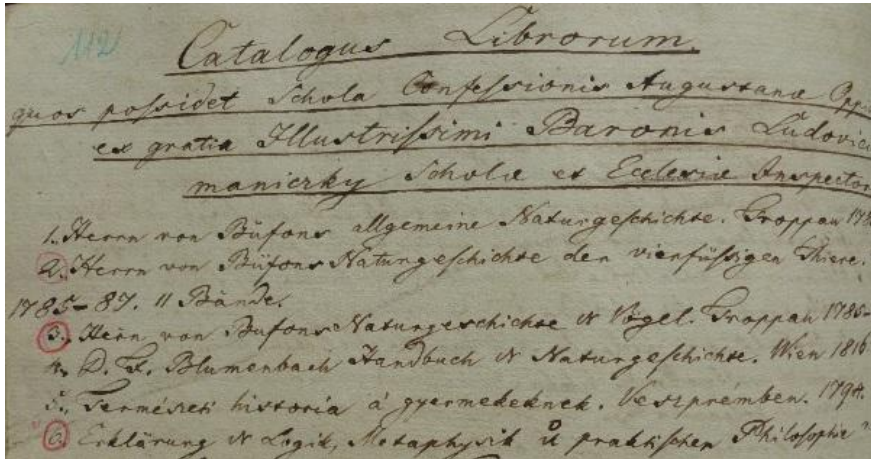 112
Catalogus Librorum.
quos possidet Schola Confessionis Augustanæ Opp
ex gratia Illustrissimi Baronis Ludovic
maniczky Scholæ et Ecclesiæ Inspector
1. Herrn von Büfons allgemeine Naturgeschichte. Troppau 178
2. Herrn von Büfons Naturgeschichte der vierfüssigen Thiere.
1785-87. 11 Bände.
3. Herrn von Bufons Naturgeschichte Vögel. Troppau 1786-
4. D. F. Blumenbach Handbuch Naturgeschichte. Wien 1816
5. Természeti historia á gyermekeknek. Veszprémben. 1794.
6. Erklärung Logik, Metaphysik u praktischen Philosophie